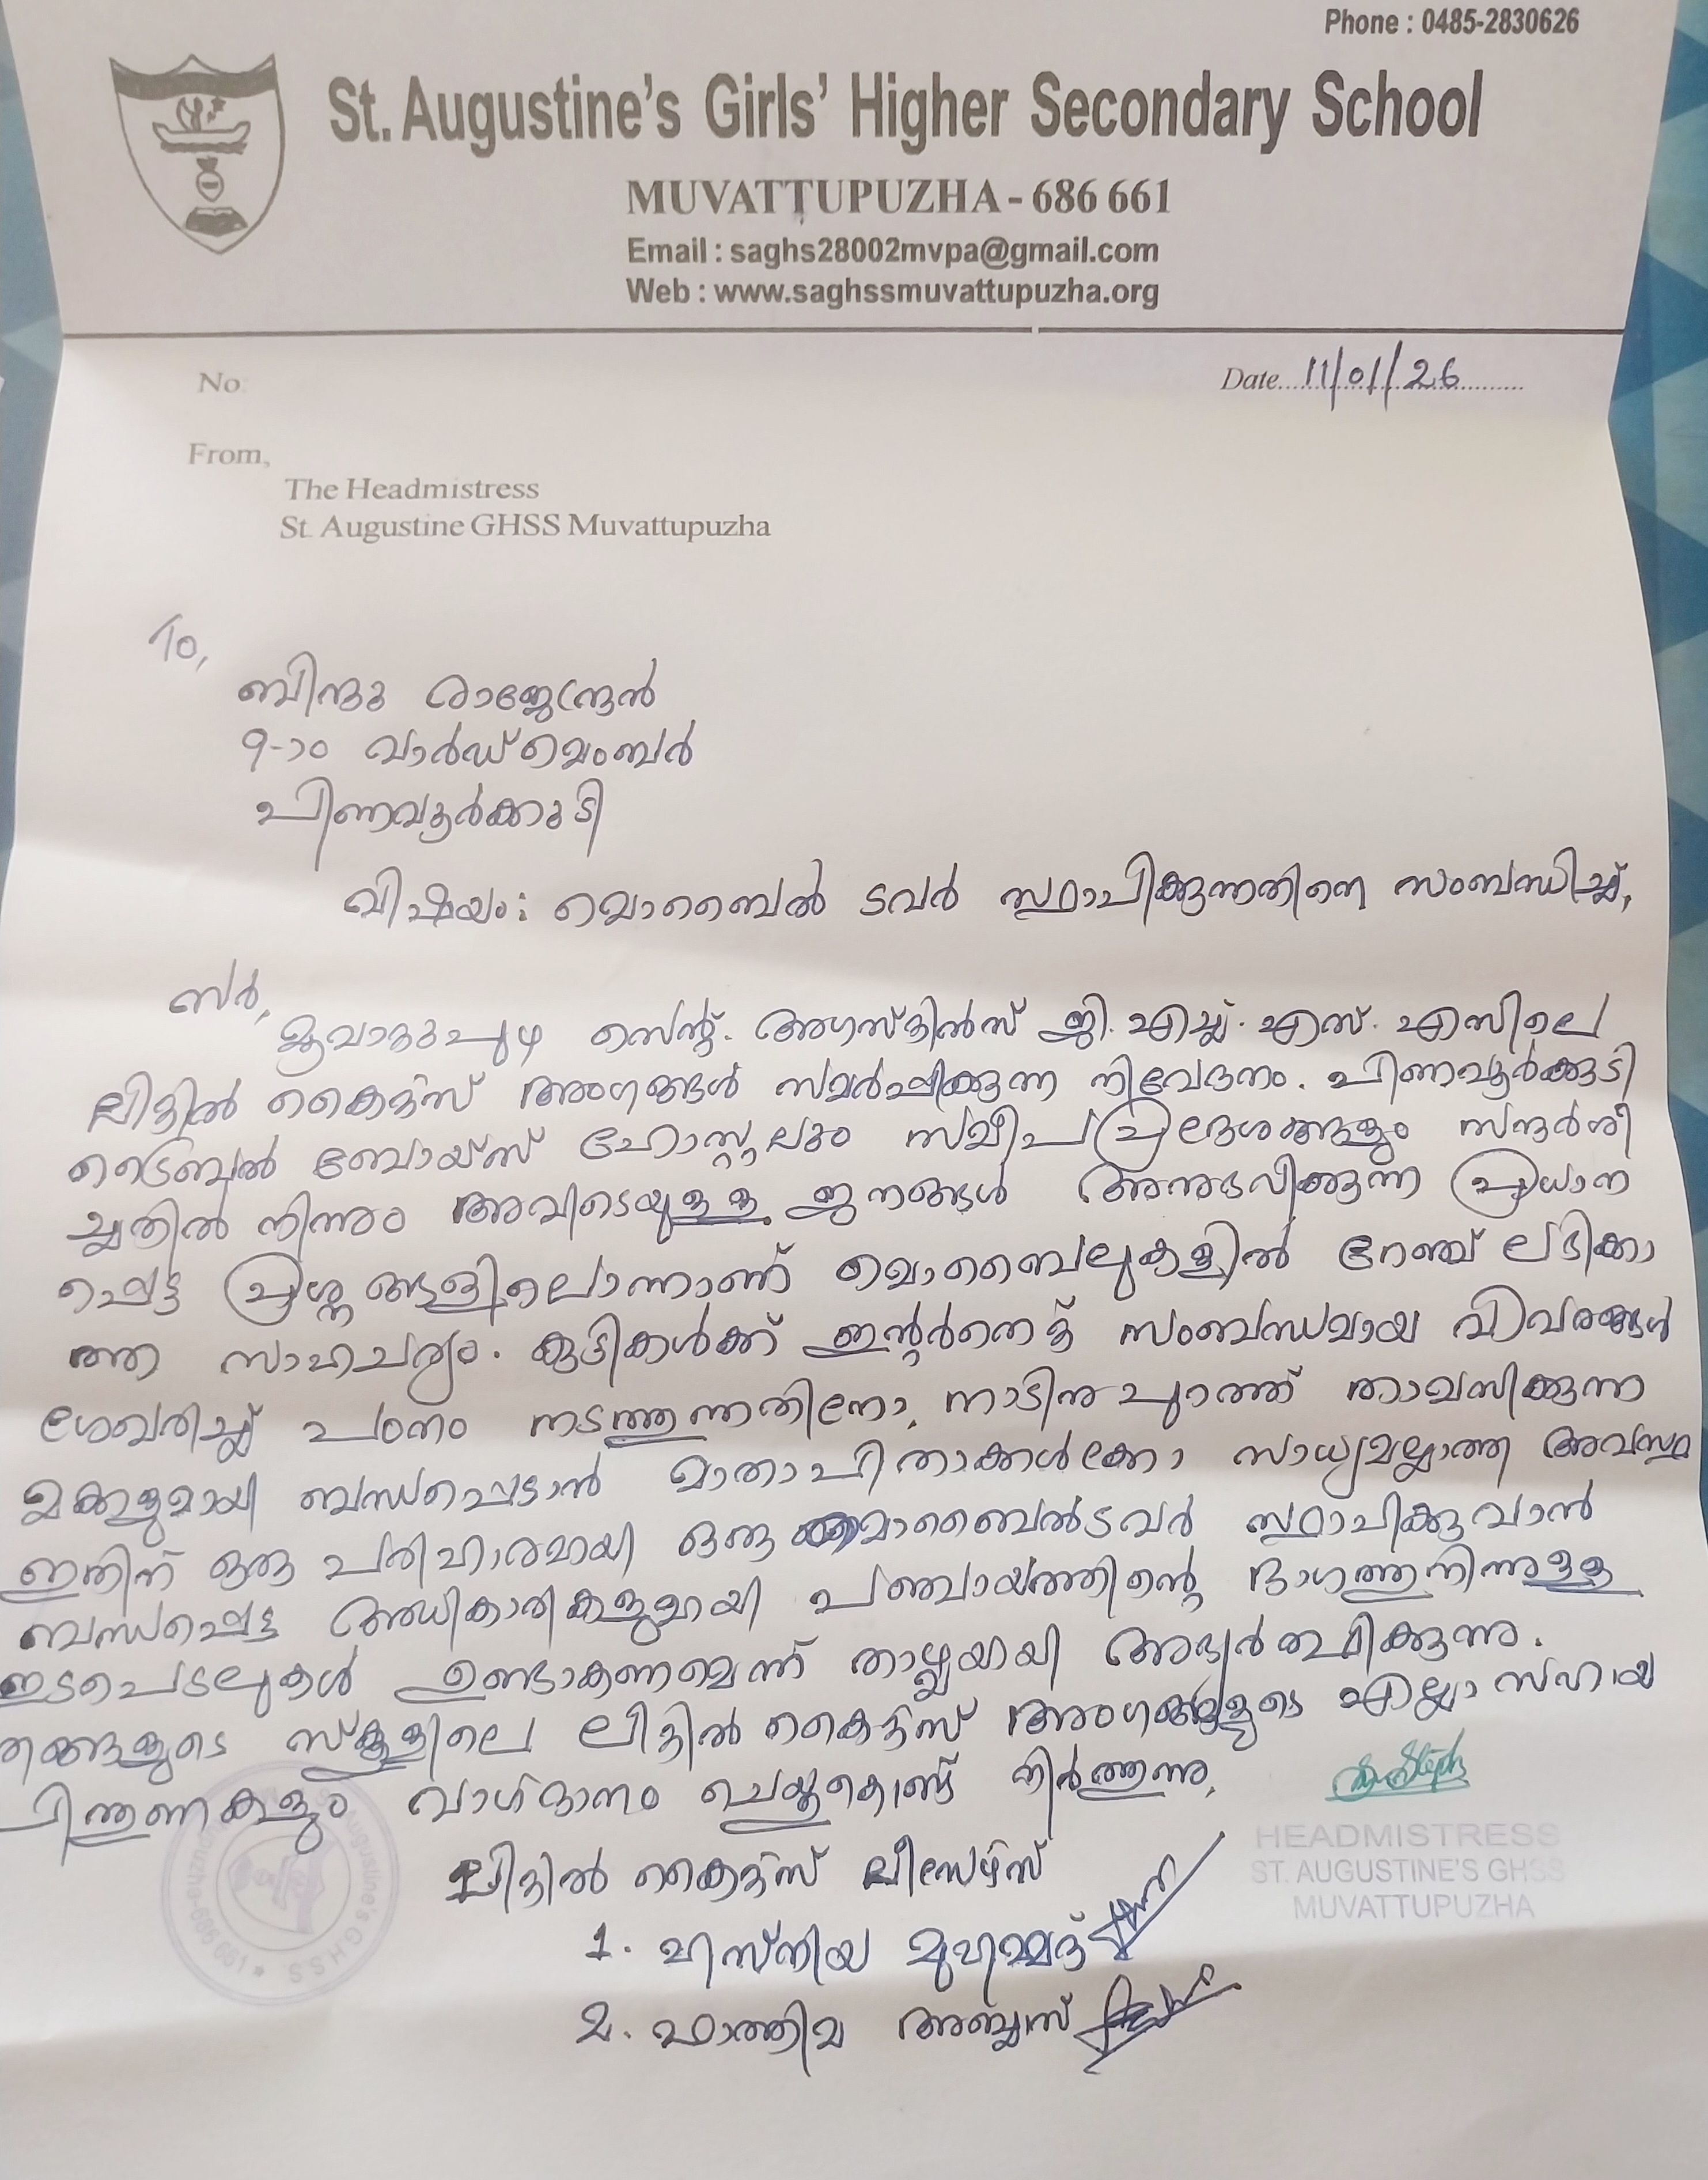 Phone : 0485-2830626
St. Augustine's Girls' Higher Secondary School
MUVATTUPUZHA - 686 661
Email : saghs28002mvpa@gmail.com
Web : www.saghssmuvattupuzha.org
No:
Date 11/01/26
From,
The Headmistress
St. Augustine GHSS Muvattupuzha
To,
ബിന്ദു രാജേന്ദ്രൻ
9-ാം വാർഡ് മെംബർ
പിണവൂർക്കുടി
വിഷയം: മൊബൈൽ ടവർ സ്ഥാപിക്കുന്നതിനെ സംബന്ധിച്ച്,
സർ,
മൂവാറ്റുപുഴ സെന്റ്. അഗസ്റ്റിൻസ് ജി. എച്ച്. എസ്. എസിലെ
ലിറ്റിൽ കൈറ്റ്സ് അംഗങ്ങൾ സമർപ്പിക്കുന്ന നിവേദനം. പിണവൂർക്കുടി
ട്രൈബൽ ബോയ്സ് ഹോസ്റ്റലും സമീപപ്രദേശങ്ങളും സന്ദർശി
ച്ചതിൽ നിന്നും അവിടെയുള്ള ജനങ്ങൾ അനുഭവിക്കുന്ന പ്രധാന
പ്പെട്ട പ്രശ്നങ്ങളിലൊന്നാണ് മൊബൈലുകളിൽ റേഞ്ച് ലഭിക്കാ
ത്ത സാഹചര്യം. കുട്ടികൾക്ക് ഇന്റർനെറ്റ് സംബന്ധമായ വിവരങ്ങൾ
ശേഖരിച്ച് പഠനം നടത്തുന്നതിനോ, നാടിനു പുറത്ത് താമസിക്കുന്ന
മക്കളുമായി ബന്ധപ്പെടാൻ മാതാപിതാക്കൾക്കോ സാധ്യമല്ലാത്ത അവസ്ഥ
ഇതിന് ഒരു പരിഹാരമായി ഒരു മൊബൈൽടവർ സ്ഥാപിക്കുവാൻ
ബന്ധപ്പെട്ട അധികാരികളുമായി പഞ്ചായത്തിന്റെ ഭാഗത്തുനിന്നുള്ള
ഇടപെടലുകൾ ഉണ്ടാകണമെന്ന് താഴ്മയായി അഭ്യർത്ഥിക്കുന്നു.
തങ്ങളുടെ സ്കൂളിലെ ലിറ്റിൽ കൈറ്റ്സ് അംഗങ്ങളുടെ എല്ലാ സഹായ
പിന്തുണകളും വാഗ്ദാനം ചെയ്തുകൊണ്ട് നിർത്തുന്നു.
HEADMISTRESS
ST. AUGUSTINE'S GHSS
MUVATTUPUZHA
ലിറ്റിൽ കൈറ്റ്സ് ലീഡേഴ്സ്
1. ഹിസ്നിയ മുഹമ്മദ്
2. ഫാത്തിമ അബ്ബാസ്